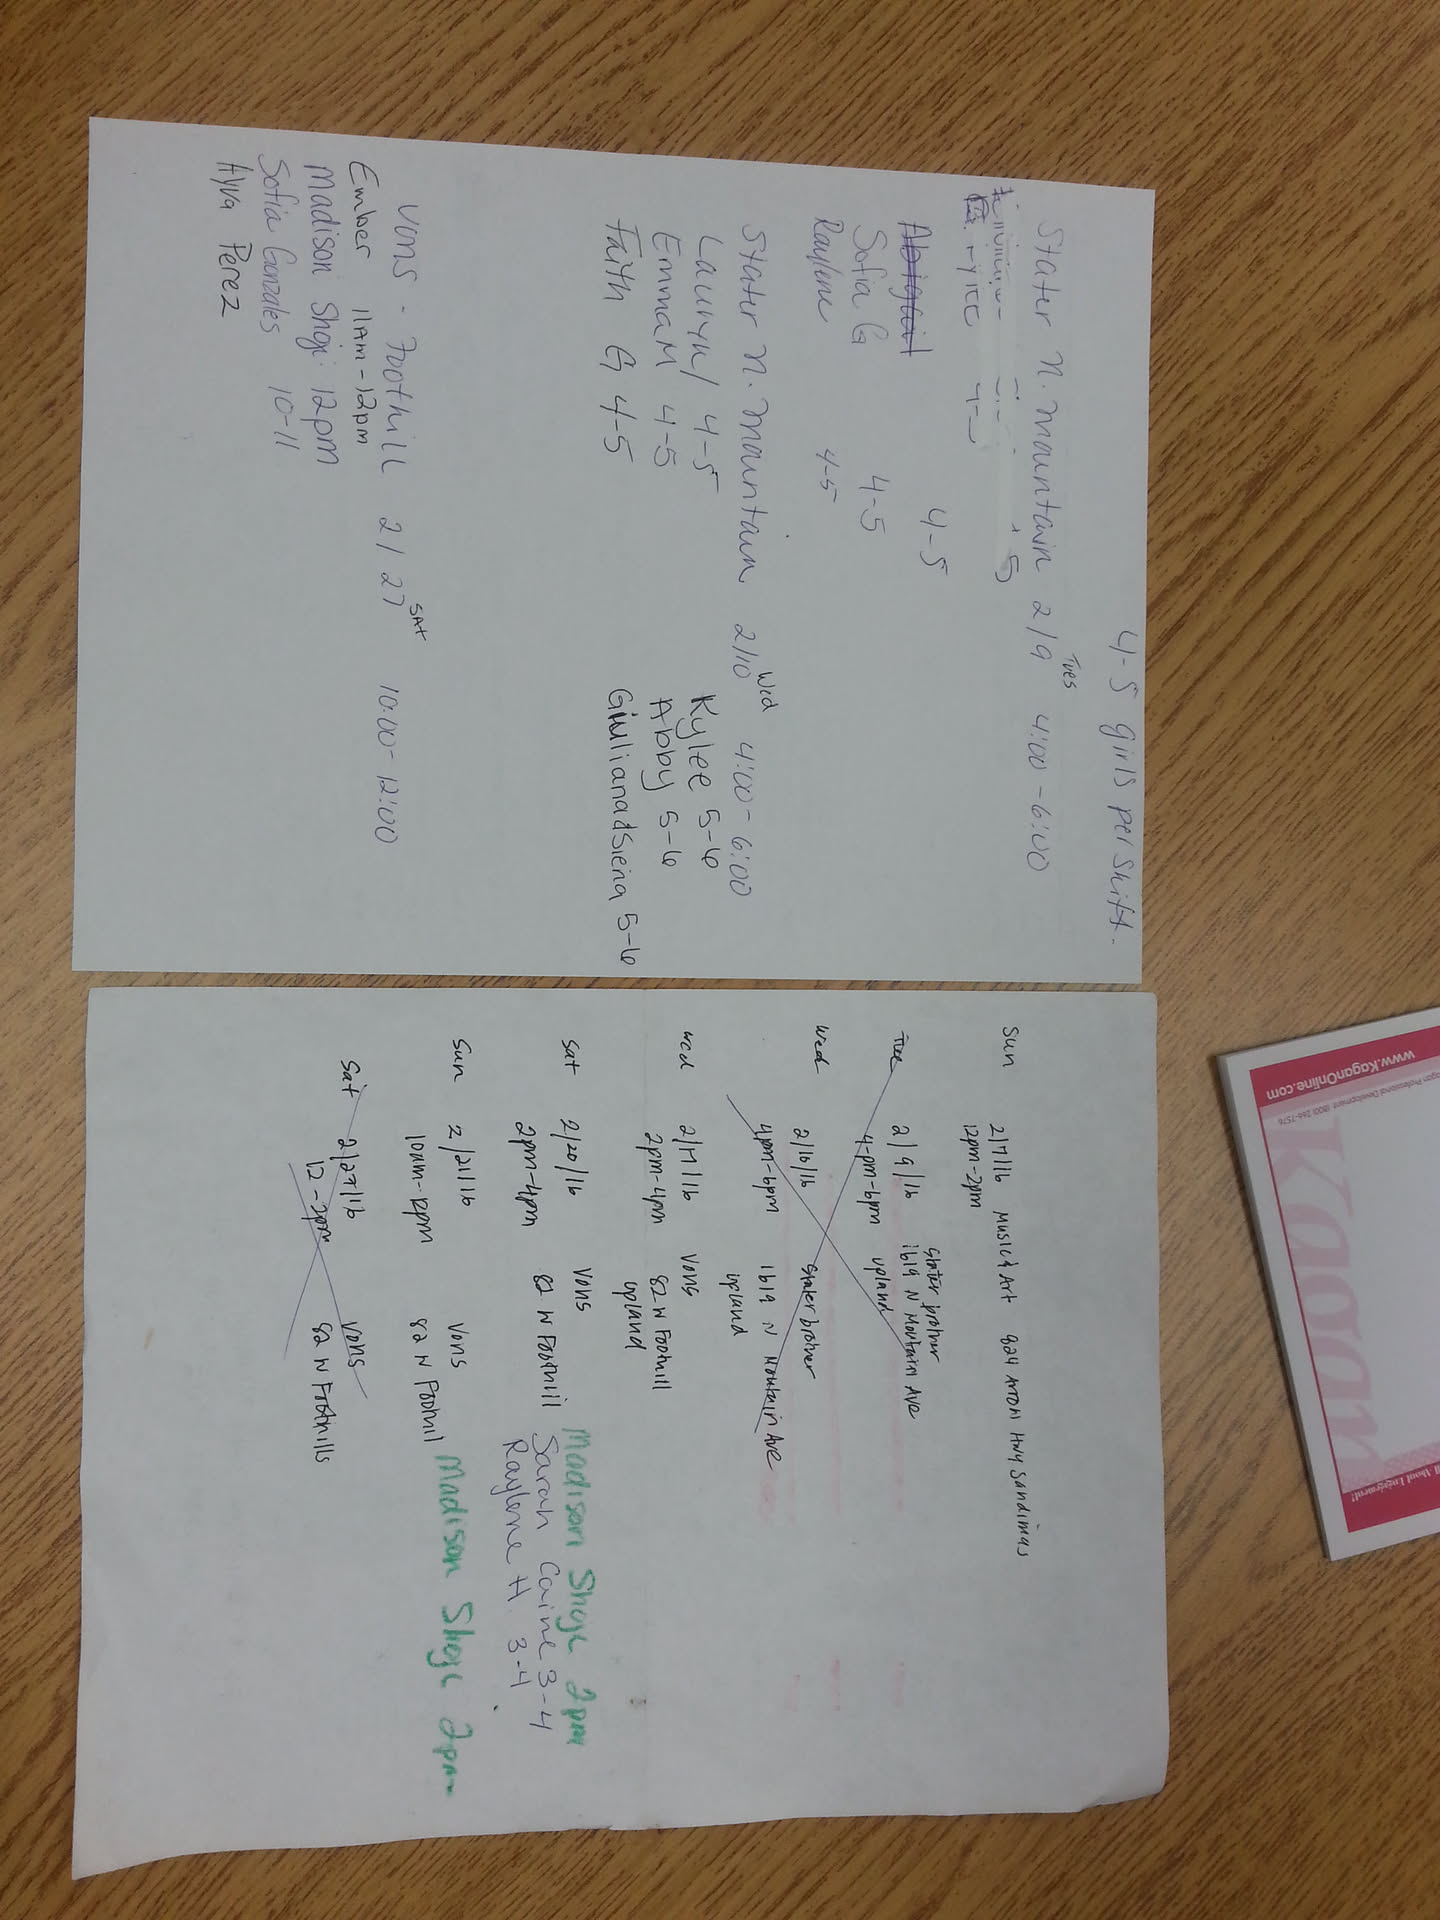 4-5 girls per shift.
Stater n. mountain 2/9 Tues 4:00-6:00
5
4-5
Abigail 4-5
Sofia G 4-5
Raylene 4-5
Stater n. mountain 2/10 Wed 4:00-6:00
Lauryn/ 4-5 Kylee 5-6
Emma M 4-5 Abby 5-6
Faith G 4-5 Giuliana & Siena 5-6
Vons - Foothill 2/27 SAt 10:00-12:00
Ember 11Am-12pm
Madison Shoji 12pm
Sofia Gonzales 10-11
Ayva Perez
Sun 2/7/16 Music & Art 924 Arrow Hwy Sandimas
12pm-2pm
Stater brother
Tue 2/9/16 1619 N Mountain Ave
4-pm-6pm upland
Wed 2/10/16 Stater brother
4pm-6pm 1619 N Mountain Ave
upland
Wed 2/17/16 Vons
2pm-4pm 82 W Foothill
upland
Sat 2/20/16 Vons Madison Shoji 2pm
2pm-4pm 82 W Foothill Sarah Caine 3-4
Raylene H. 3-4
Sun 2/21/16 Vons Madison Shoji 2pm
10am-12pm 82 W Foothill
Sat 2/27/16 Vons
12-2pm 82 W Foothills
www.KaganOnline.com
Kagan Professional Development 1(800) 266-7576
Kagan
It's All About Engagement!